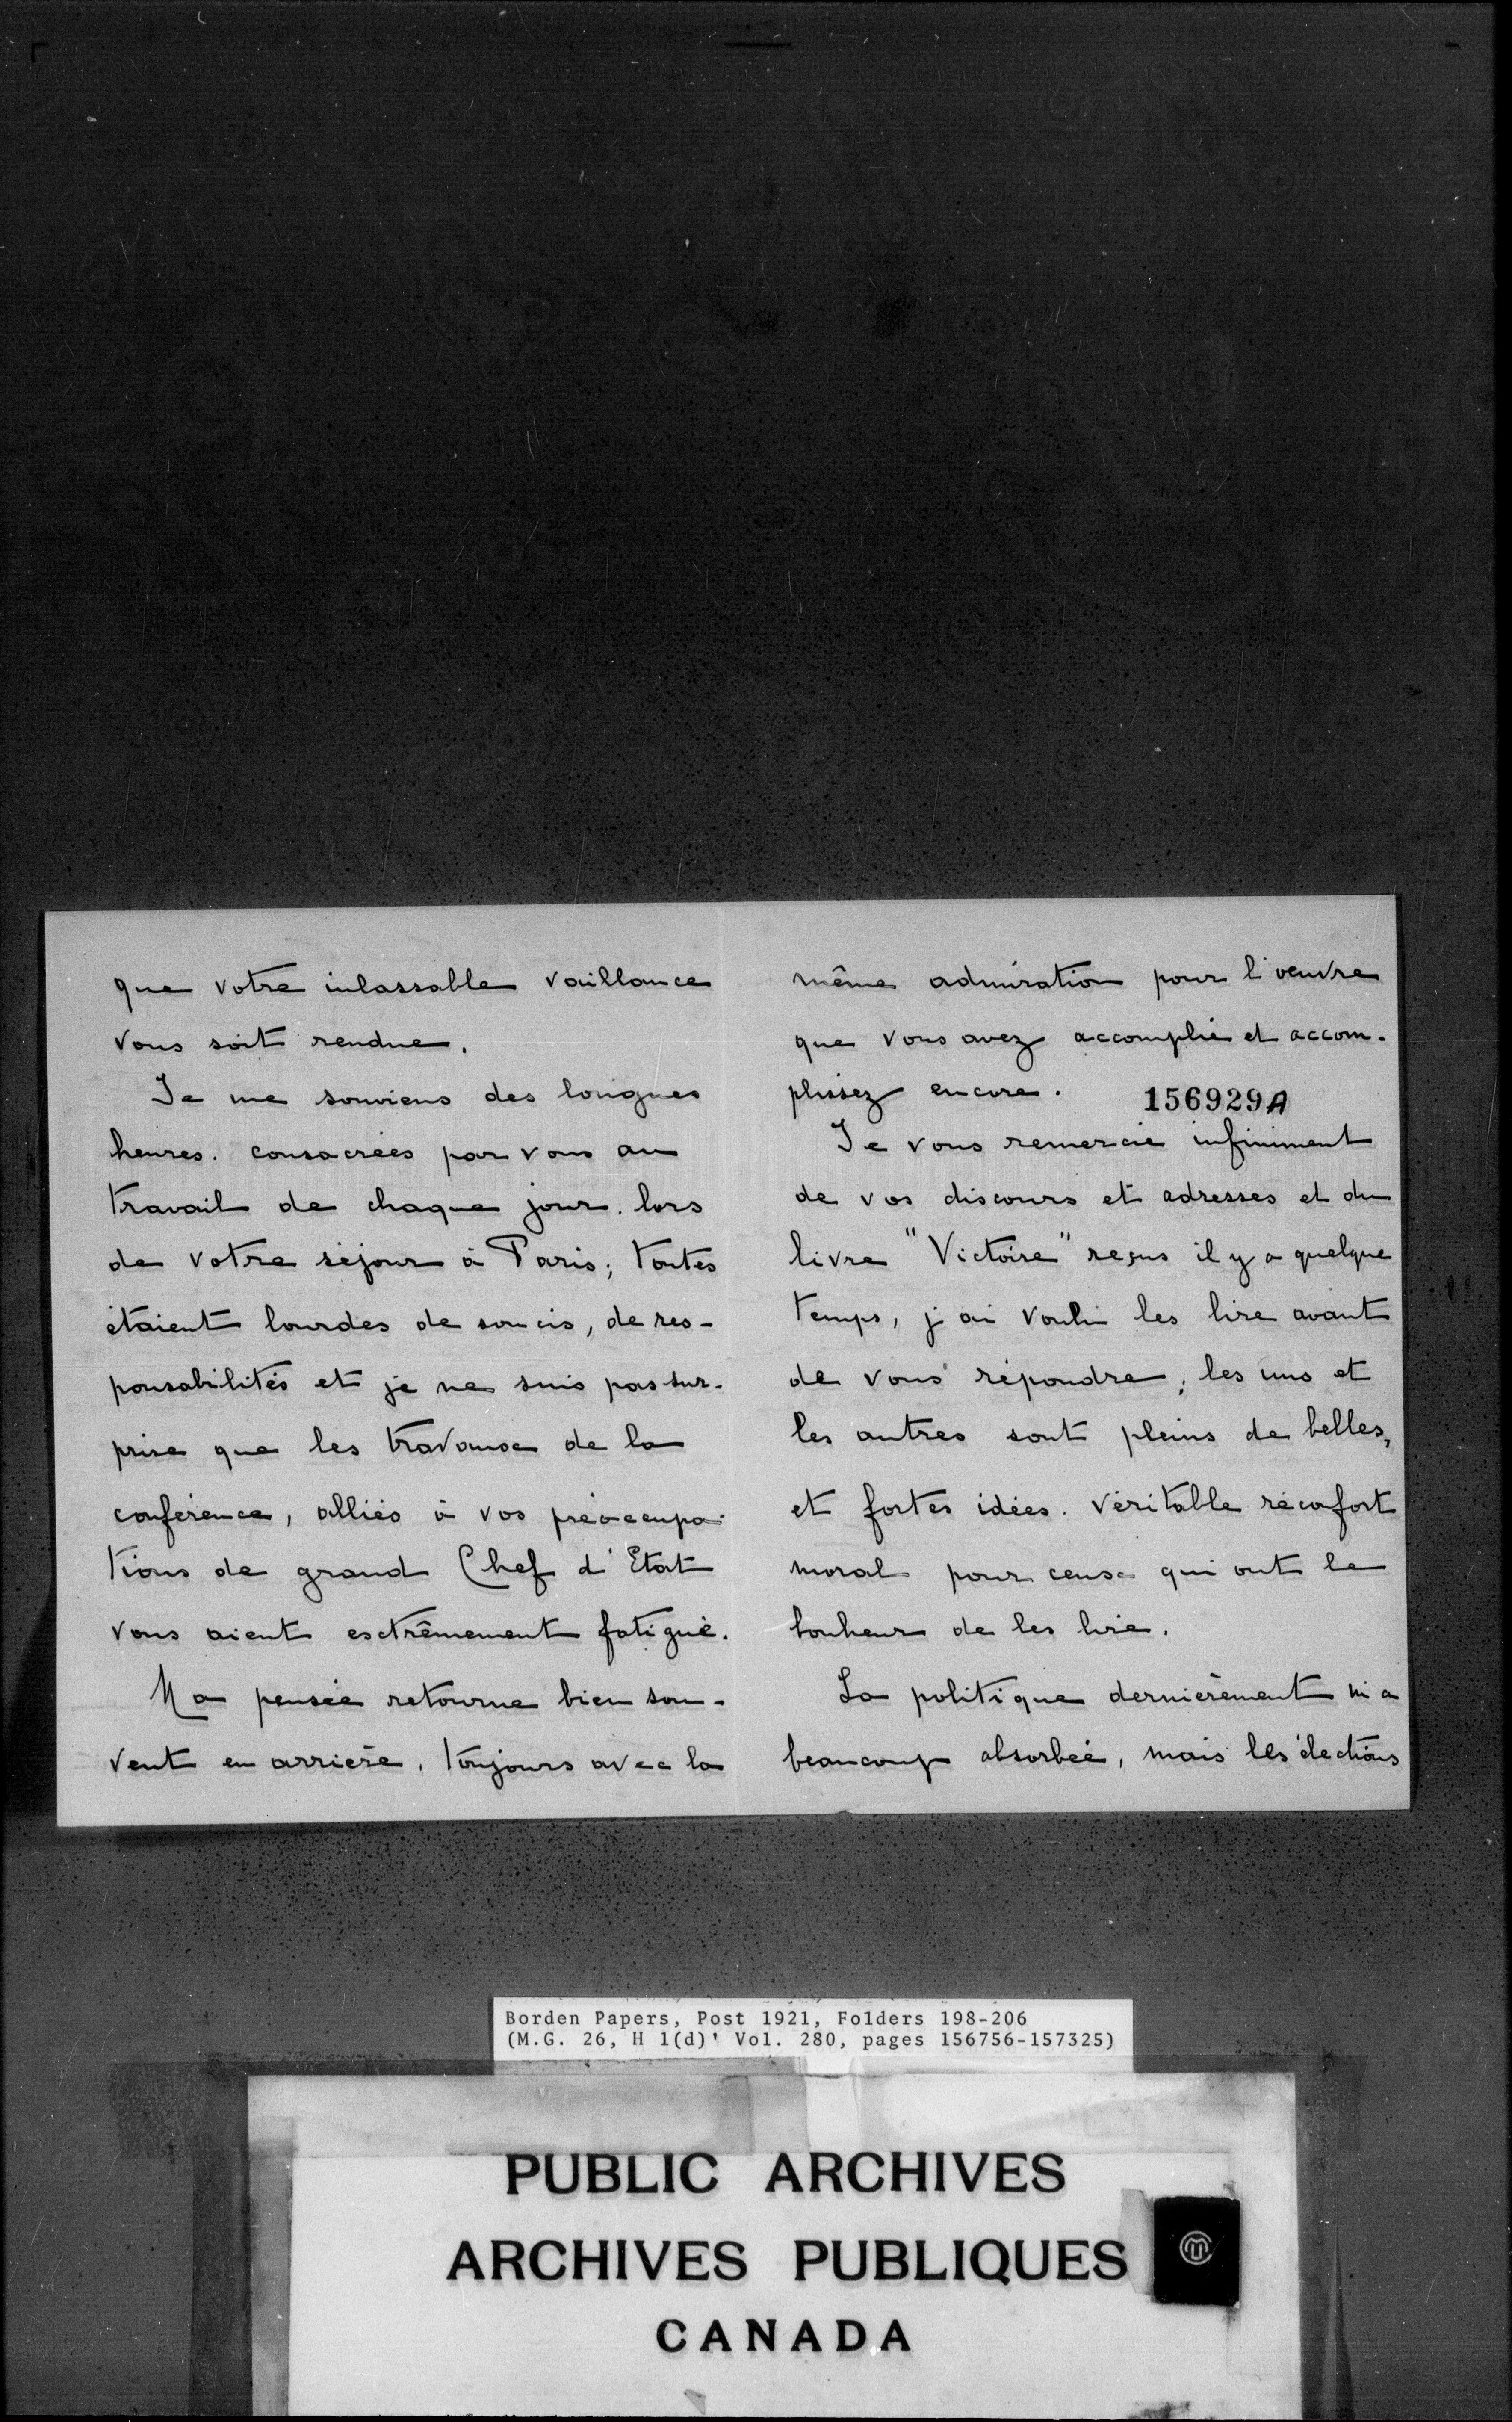 que votre inlassable vaillance
vous soit rendue.
Je me souviens des longues
heures. consacrées par vous au
travail de chaque jour. lors
de votre séjour à Paris; toutes
étaient lourdes de soucis, de res-
ponsabilités et je ne suis pas sur-
prise que les travaux de la
conférence, alliés à vos préoccupa-
tions de grand Chef d'Etat
vous aient extrêmement fatigué.
Ma pensée retourne bien sou-
vent en arrière, toujours avec la
même admiration pour l'oeuvre
que vous avez accomplie et accom-
plissez encore.
156929A
Je vous remercie infiniment
de vos discours et adresses et du
livre "Victoire" reçus il y a quelque
temps, j'ai voulu les lire avant
de vous répondre; les uns et
les autres sont pleins de belles,
et fortes idées. Véritable réconfort
moral pour ceux qui ont le
bonheur de les lire.
La politique dernièrement m'a
beaucoup absorbée, mais les élections
Borden Papers, Post 1921, Folders 198-206
(M.G. 26, H 1(d)' Vol. 280, pages 156756-157325)
PUBLIC ARCHIVES
ARCHIVES PUBLIQUES
CANADA